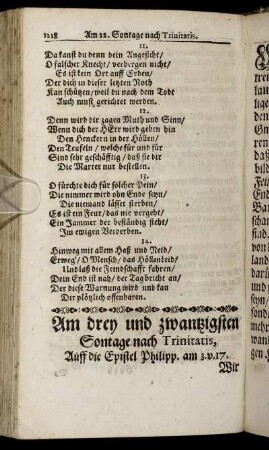 1218 Am 22. Sontage nach Trinitatis.
11.
Da kanst du denn dein Angesicht/
O falscher Knecht/ verbergen nicht/
Es ist kein Ort auff Erden/
Der dich in dieser letzten Noth
Kan schützen/ weil du nach dem Tode
Auch must gerichtet werden.
12.
Denn wird dir zagen Muth und Sinn/
Wenn dich der HErr wird geben hin
Den Henckern in der Höllen/
Den Teufeln/ welche für und für
Sind sehr geschäfftig/ daß sie dir
Die Marter nur bestellen.
13.
O fürchte dich für solcher Pein/
Die nimmer wird ohn Ende seyn/
Die niemand lässet sterben/
Es ist ein Feur/ das nie vergeht/
Ein Jammer der beständig steht/
Im ewigen Verderben.
14.
Hinweg mit allem Haß und Neid/
Erweg'/ O Mensch/ das Höllenleid/
Und laß die Feindschafft fahren/
Dein End ist nah/ der Tag bricht an/
Der diese Warnung wird und kan
Dir plötzlich offenbaren.
Am drey und zwantzigsten
Sontage nach Trinitatis,
Auff die Epistel Philipp. am 3.v.17.
Wir